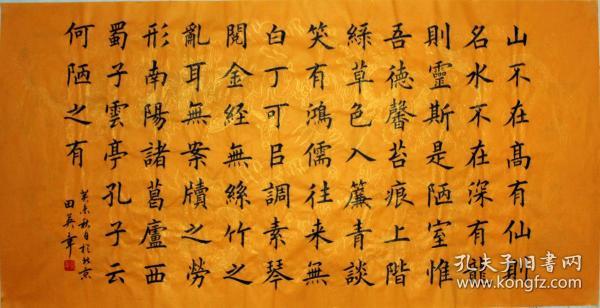 山不在髙有仙則
名水不在深有龍
則靈斯是陋室惟
吾德馨苔痕上階
綠草色入簾青談
笑有鴻儒往来無
白丁可㠯調素琴
閱金経無絲竹之
亂耳無案牘之勞
形南陽諸葛廬西
蜀子雲亭孔子云
何陋之有
癸未秋月於北京
田英章
孔夫子旧书网
www.kongfz.com